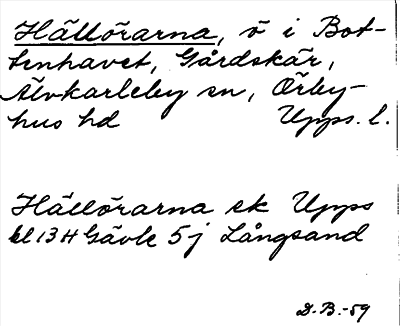 Hällörarna, ö i Bot-
tenhavet, Gårdskär,
Älvkarleby sn, Örby-
hus hd Upps. l.
Hällörarna ek Upps
bl 13 H Gävle 5j Långsand
D.B.-59